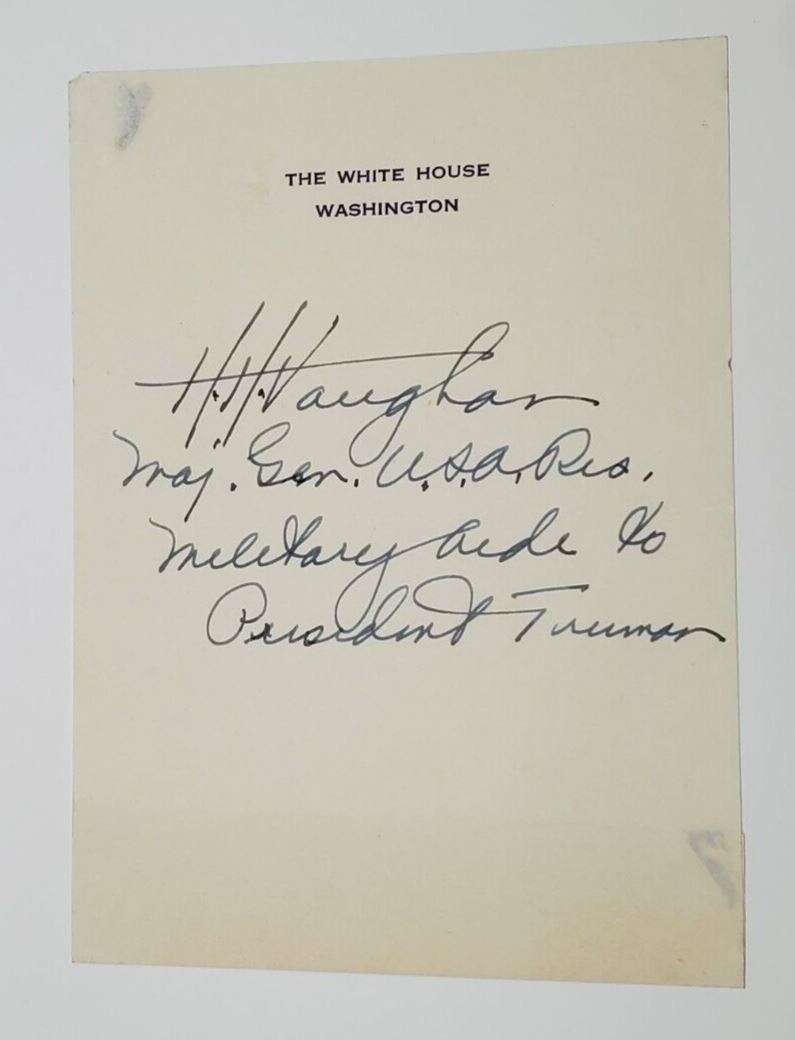 THE WHITE HOUSE
WASHINGTON
H.H.Vaughan
Maj. Gen. U.S.A. Res.
Military Aide to
President Truman